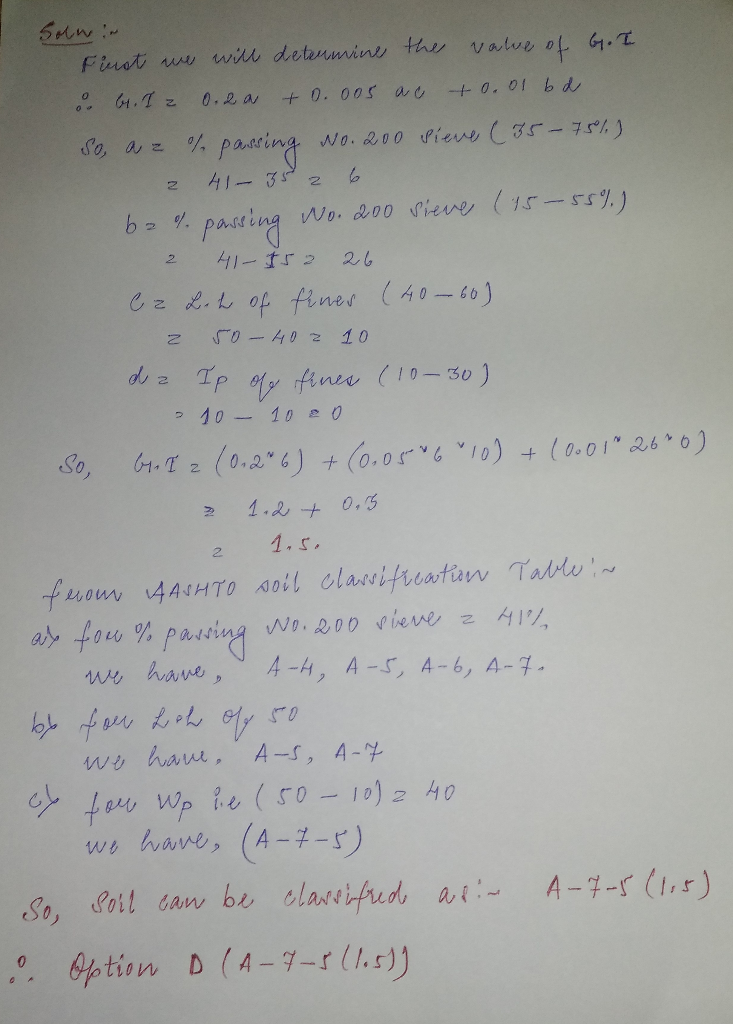 Soln :~
First we will determine the value of G.I
∴ G.I = 0.2a + 0.005 ac + 0.01 bd
So, a = % passing No. 200 sieve (35 – 75%)
= 41 – 35 = 6
b = % passing No. 200 sieve (15 – 55%)
= 41 – 15 = 26
C = L.L of fines (40 – 60)
= 50 – 40 = 10
d = Ip of fines (10 – 30)
= 10 – 10 = 0
So, G.I = (0.2*6) + (0.05*6*10) + (0.01*26*0)
= 1.2 + 0.3
= 1.5.
from AASHTO soil classification Table :~
a> for % passing No. 200 sieve = 41%
we have, A-4, A-5, A-6, A-7.
b> for L.L of 50
we have. A-5, A-7
c> for Wp i.e (50 – 10) = 40
we have, (A-7-5)
So, Soil can be classified as :~ A-7-5 (1.5)
∴ Option D (A-7-5(1.5))